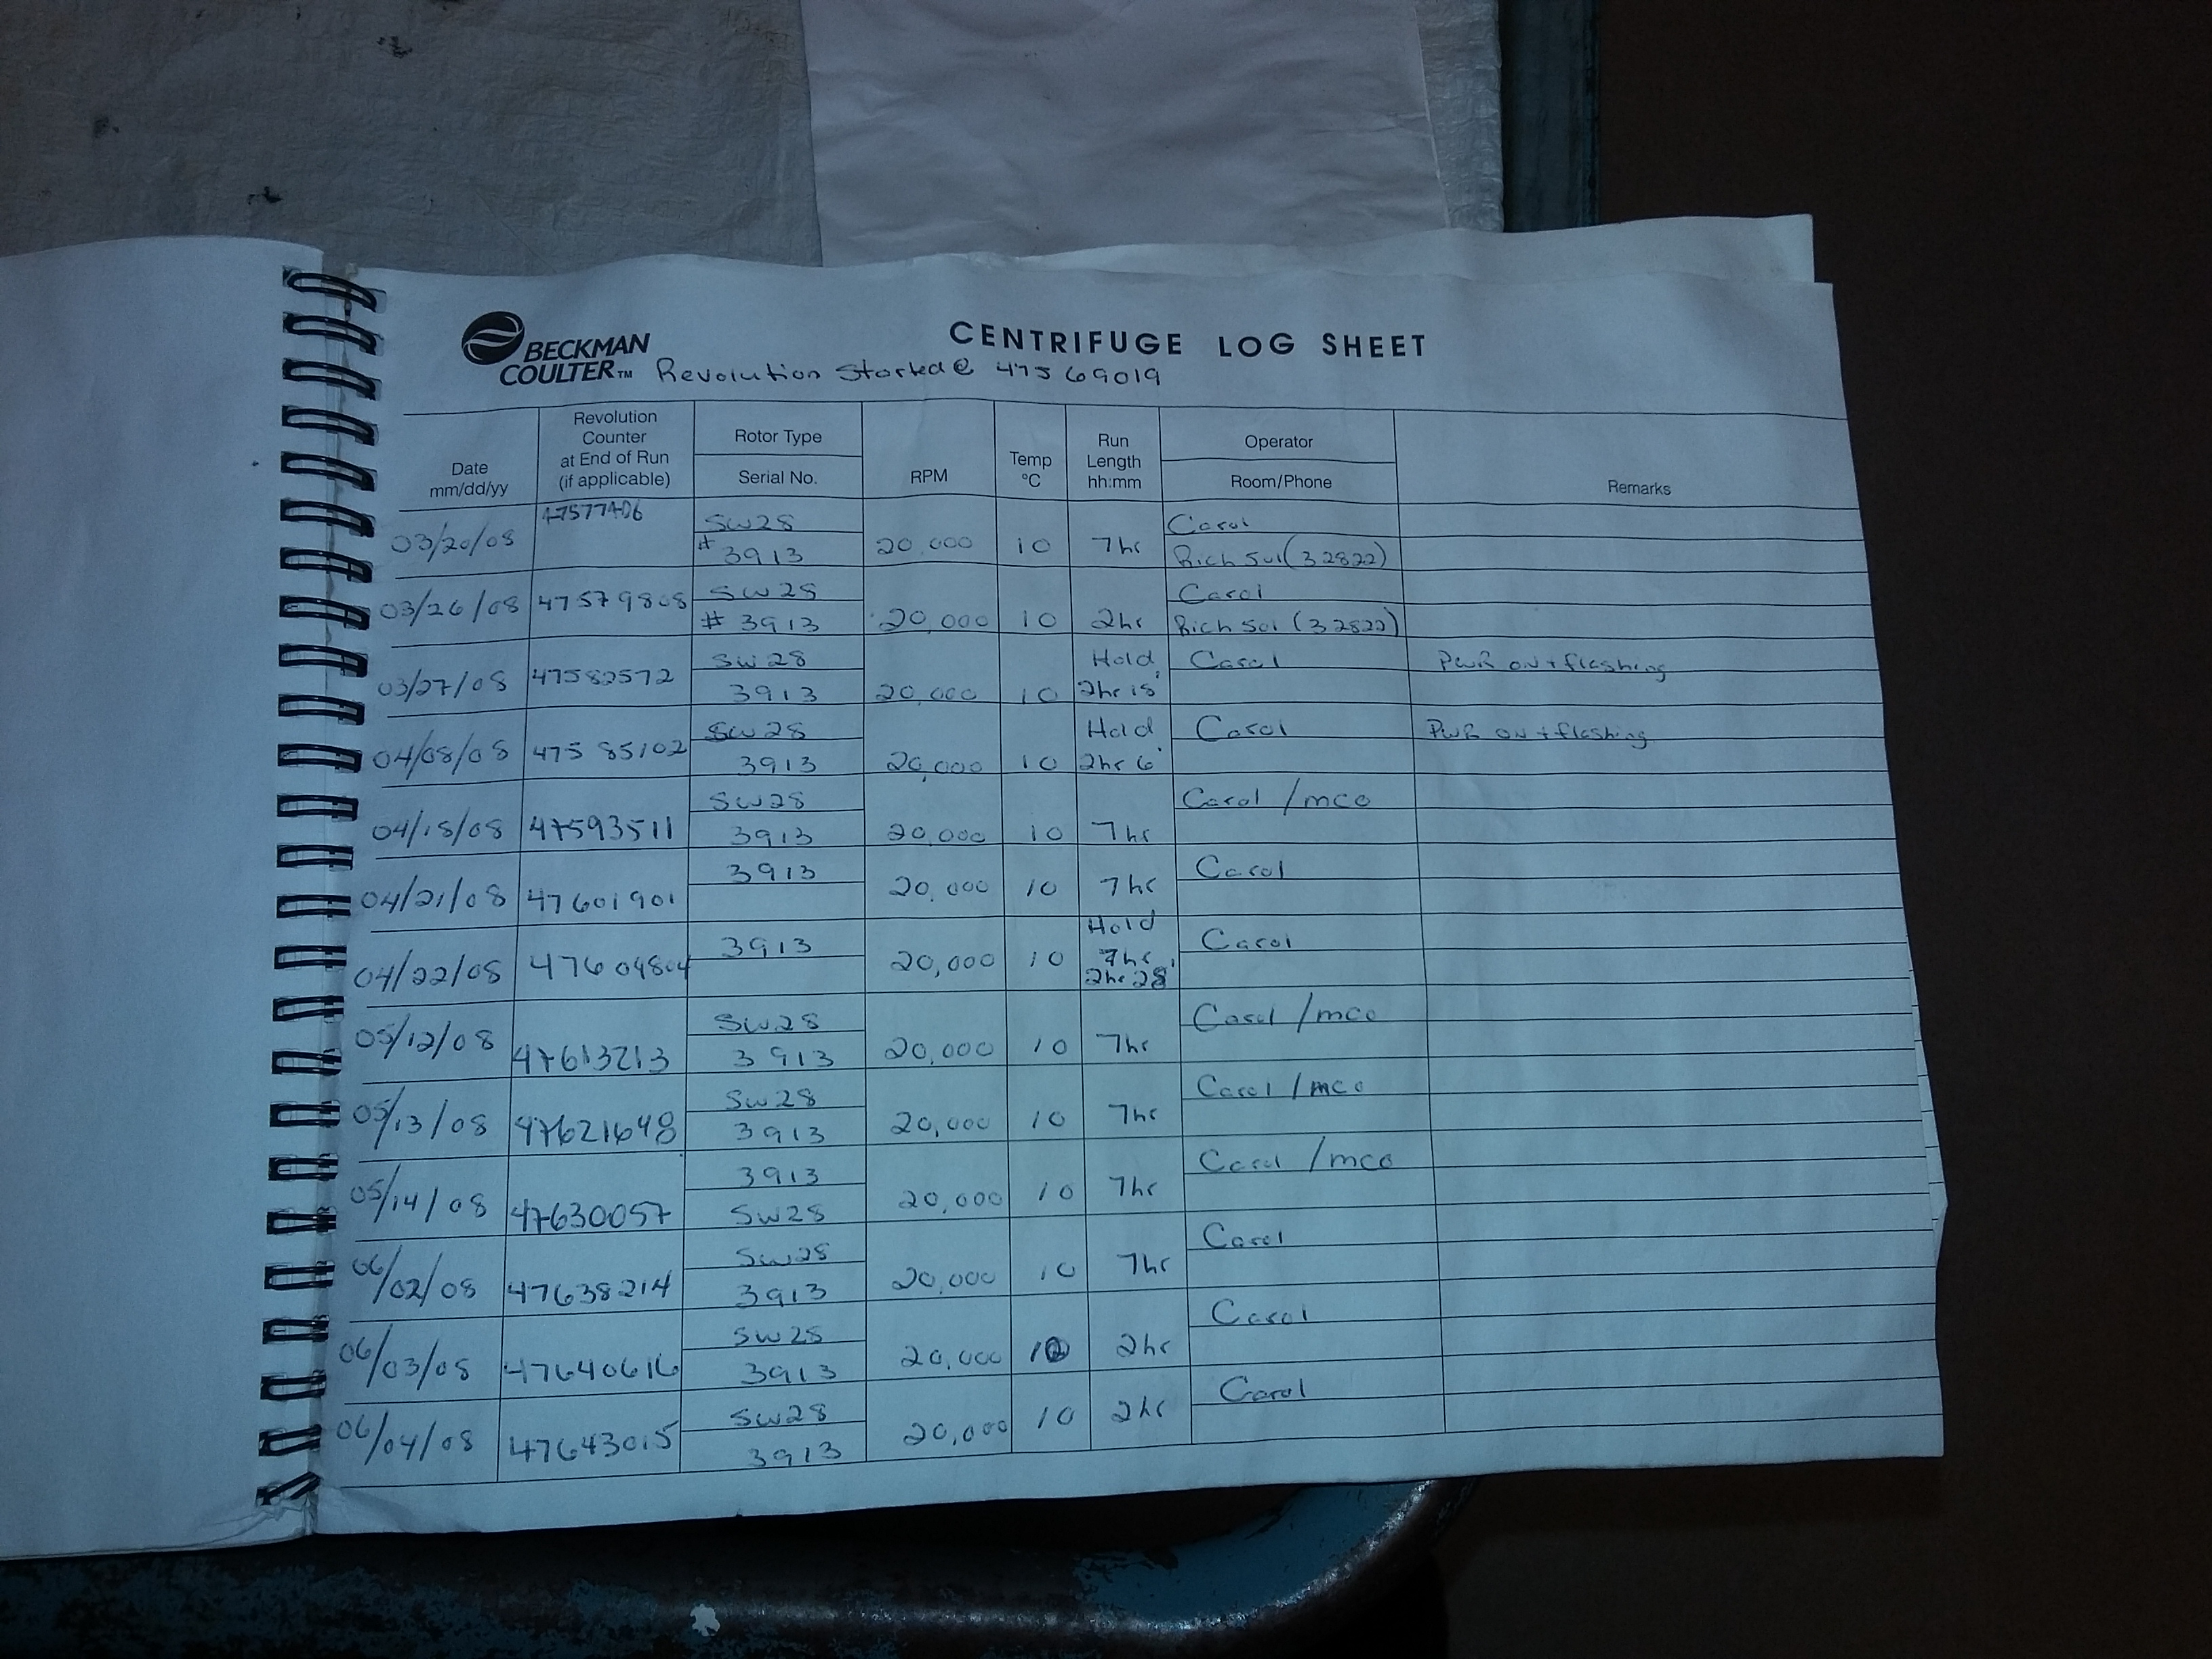 BECKMAN
COULTER™
CENTRIFUGE LOG SHEET
Revolution Started @ 47569019
Date
mm/dd/yy
Revolution
Counter
at End of Run
(if applicable)
Rotor Type
Serial No.
RPM
Temp
°C
Run
Length
hh:mm
Operator
Room/Phone
Remarks
03/20/08 47577406 SW28 # 3913 20,000 10 7hr Carol Rich Sul (32822)
03/26/08 47579808 SW28 # 3913 20,000 10 2hr Carol Rich Sul (32822)
03/27/08 47582572 SW28 3913 20,000 10 Hold 2hr 18' Carol PWR ON + flashing
04/08/08 47585102 SW28 3913 20,000 10 Hold 2hr 6' Carol PWR ON + flashing
04/18/08 47593511 SW28 3913 20,000 10 7hr Carol /mco
04/21/08 47601901 3913 20,000 10 7hr Carol
04/22/08 47604804 3913 20,000 10 Hold 7hr 2hr 28' Carol
05/12/08 47613213 SW28 3913 20,000 10 7hr Carol /mco
05/13/08 47621648 SW28 3913 20,000 10 7hr Carol /mco
05/14/08 47630057 3913 SW28 20,000 10 7hr Carol /mco
06/02/08 47638214 SW28 3913 20,000 10 7hr Carol
06/03/08 47640616 SW28 3913 20,000 10 2hr Carol
06/04/08 47643015 SW28 3913 20,000 10 2hr Carol